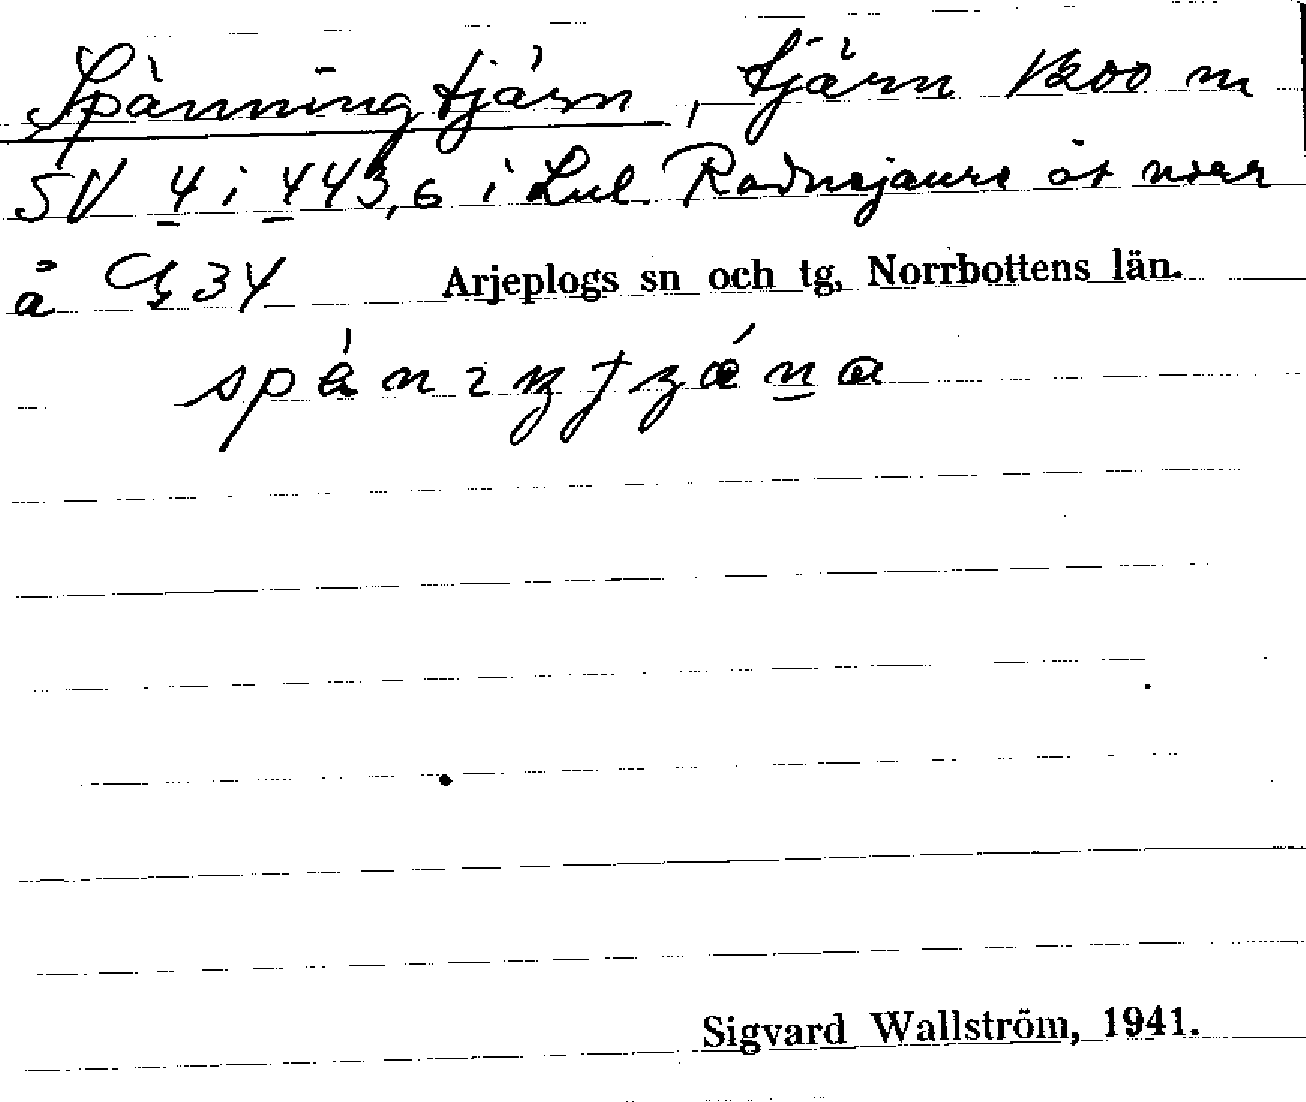 Spänningtjärn, tjärn 1200 m
SV 4 i 443,6 i Lul. Radnejaure åt norr
å G 34 Arjeplogs sn och tg, Norrbottens län.
Sigvard Wallström, 1941.